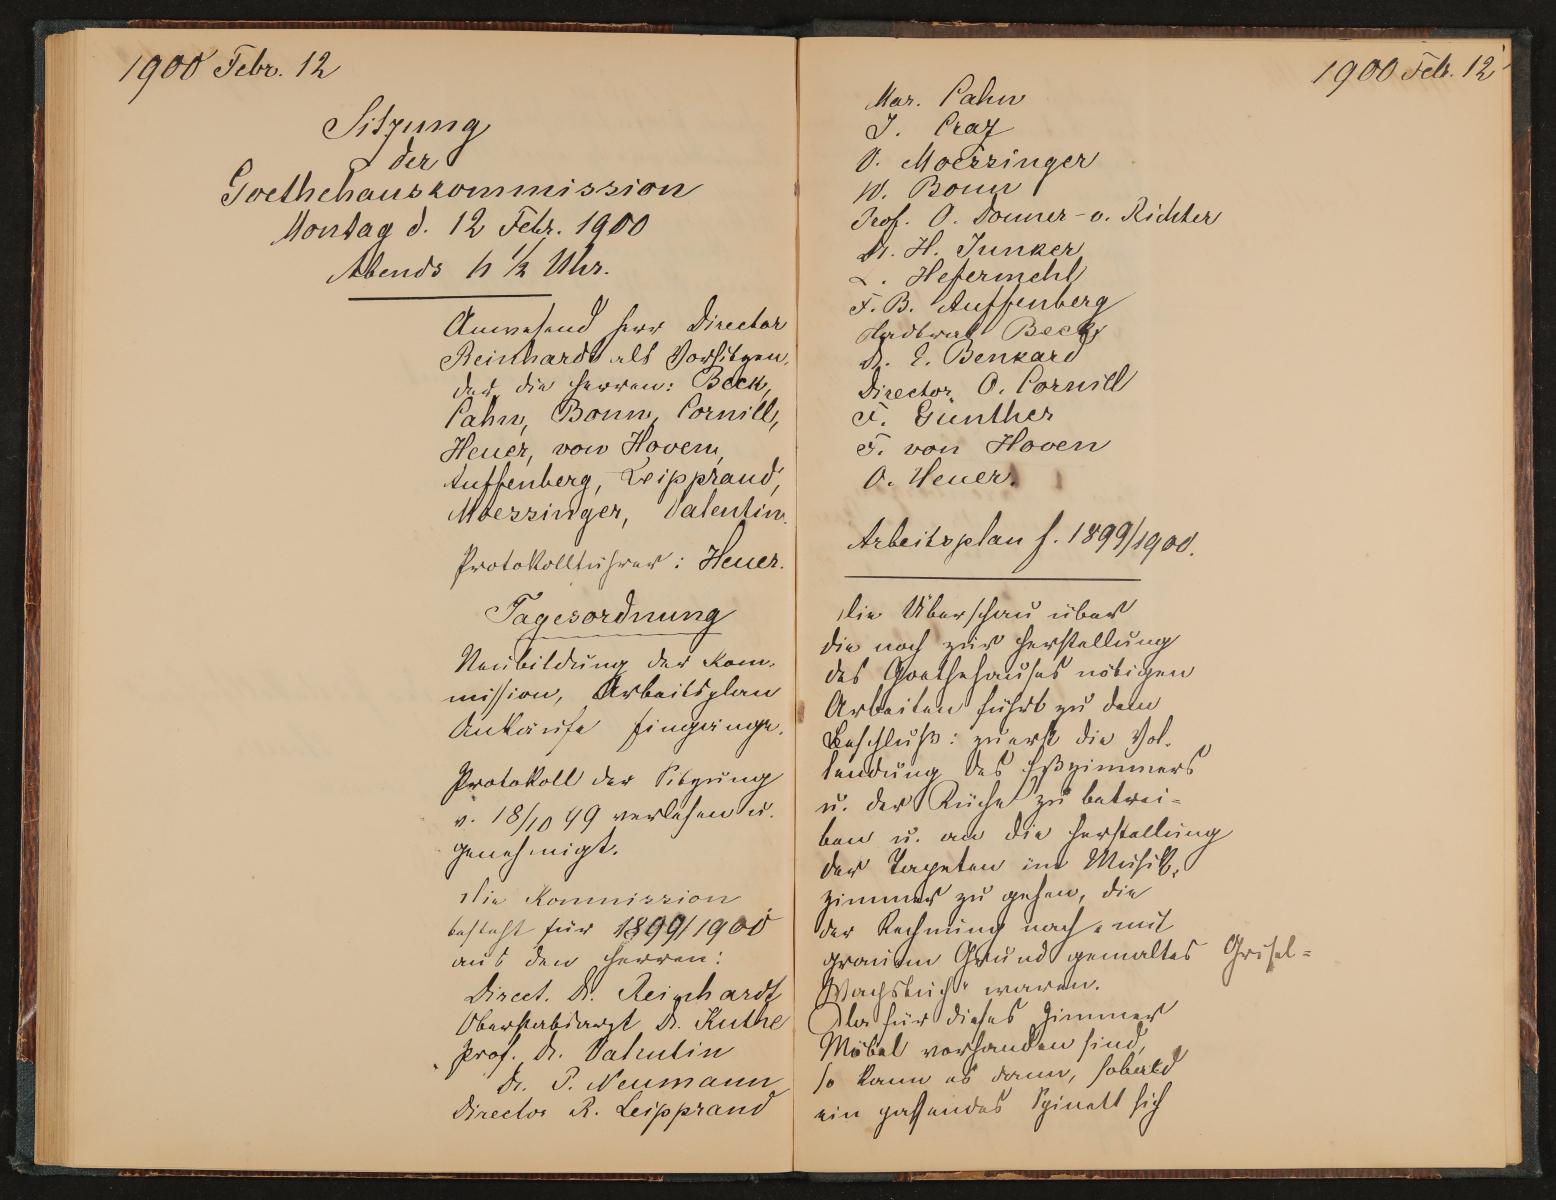 1900 Febr. 12
Sitzung
der
Goethehauskommission
Montag d. 12 Febr. 1900
Abends 6 1/2 Uhr.
Anwesend Herr Director
Reinhardt als Vorsitzen-
der die Herren: Beck,
Cahn, Bonn, Cornill,
Heuer, von Hoven,
Auffenberg, Leipprand,
Moessinger, Valentin.
Protokollführer: Heuer.
Tagesordnung
Neubildung der Kom-
mission, Arbeitsplan
Ankäufe Eingänge.
Protokoll der Sitzung
v. 18/10 99 verlesen u.
genehmigt.
Die Kommission
besteht für 1899/1900
aus den Herren:
Direct. Dr. Reinhardt
Oberstabsarzt Dr. Kuthe
Prof. Dr. Valentin
Dr. P. Neumann
Director R. Leipprand
1900 Feb. 12
Mar. Cahn
J. Craz
O. Moessinger
W. Bonn
Prof. O. Donner-v. Richter
Dr. H. Junker
L. Hefermehl
F. B. Auffenberg
Stadtrat Beck
Dr. E. Benkard
Director O. Cornill
F. Günther
F. von Hoven
O. Heuer.
Arbeitsplan f. 1899/1900.
Die Überschau über
die noch zur Herstellung
des Goethehauses nötigen
Arbeiten führt zu dem
Beschluß: zuerst die Vol-
lendung des Eßzimmers
u. der Küche zu betrei-
ben u. an die Herstellung
der Tapeten im Musik-
zimmer zu gehen, die
der Rechnung nach "mit
grauem Grund gemaltes Grisel-
Wachstuch" waren.
Da für dieses Zimmer
Möbel vorhanden sind,
so kann es dann, sobald
ein passendes Spinett sich